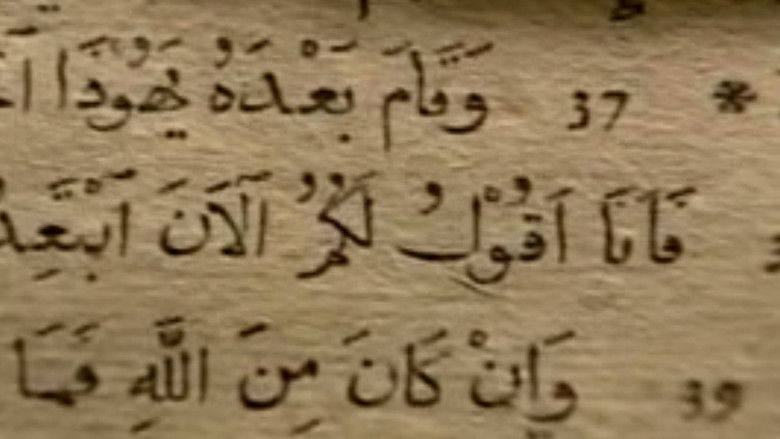 * 37 وَقَامَ بَعْدَهُ يَهُوْدَا
فَاَنَا اَقُوْلُ لَكُمُ آلْآنَ اَبْتَعِد
39 وَاِنْ كَانَ مِنَ اللَّهِ فَمَا